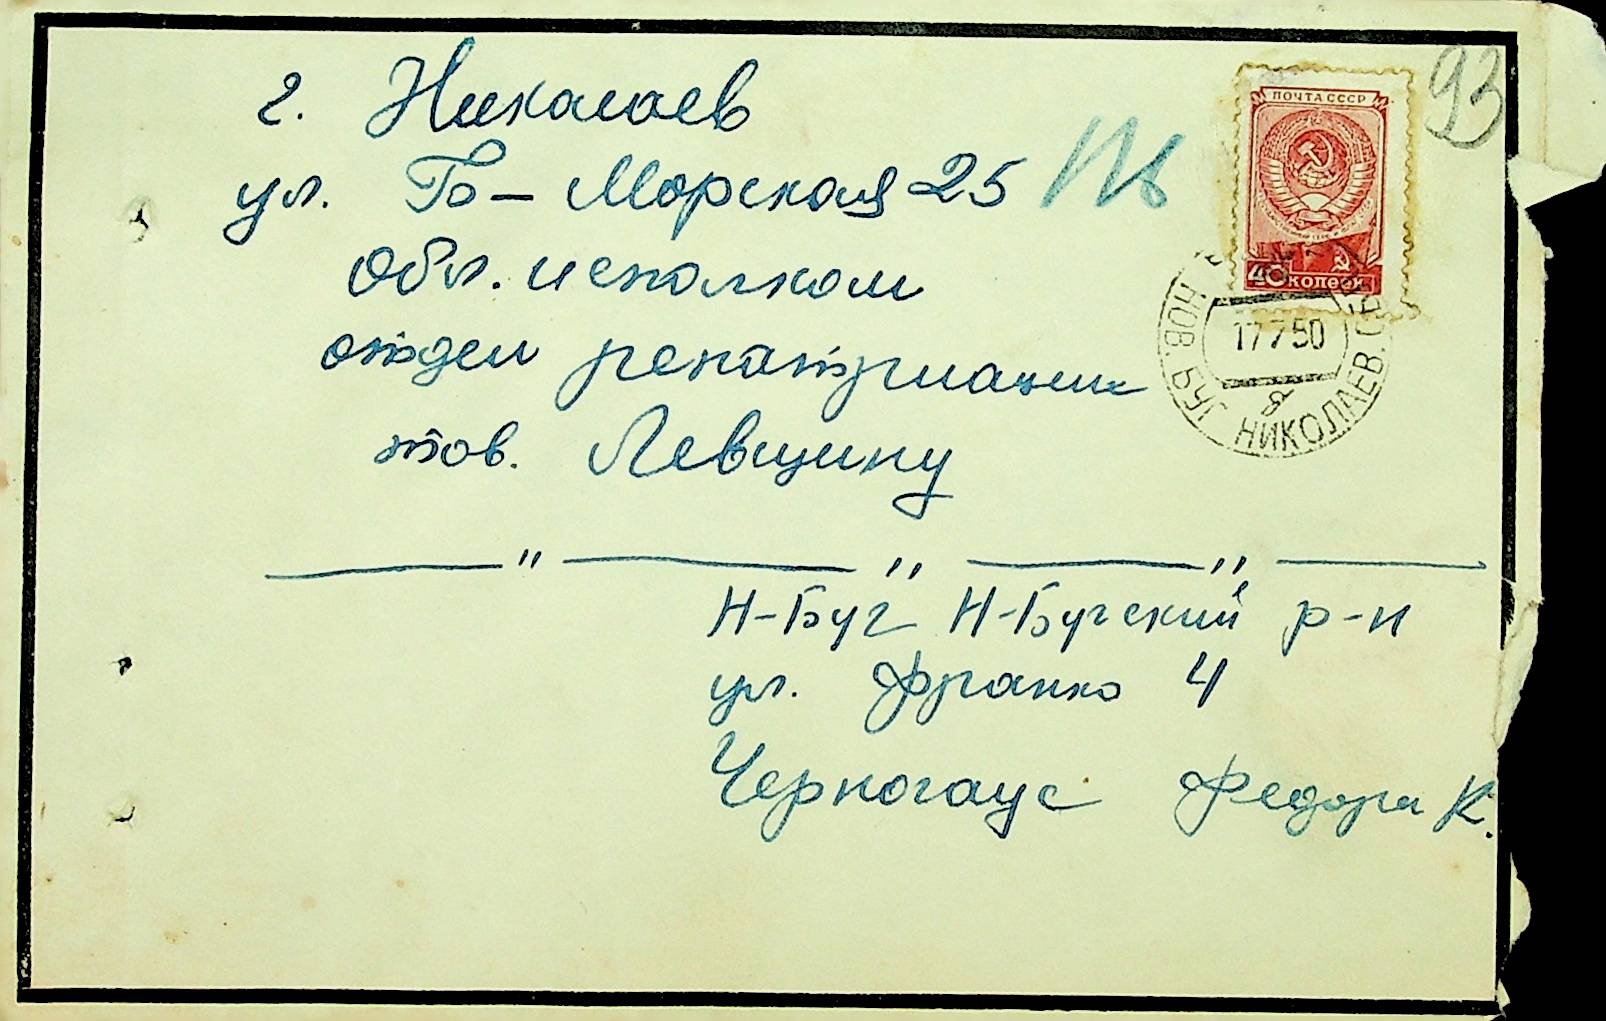 93
ПОЧТА СССР
40 копеек
г. Николаев
ул. Б-Морская 25
Обл. исполком
отдел репатриации
тов. Левщину
17 7 50
НОВ. БУГ НИКОЛАЕВ.
Н-Буг Н-Бугский р-н
ул. Франко 4
Черногаус Федора К.